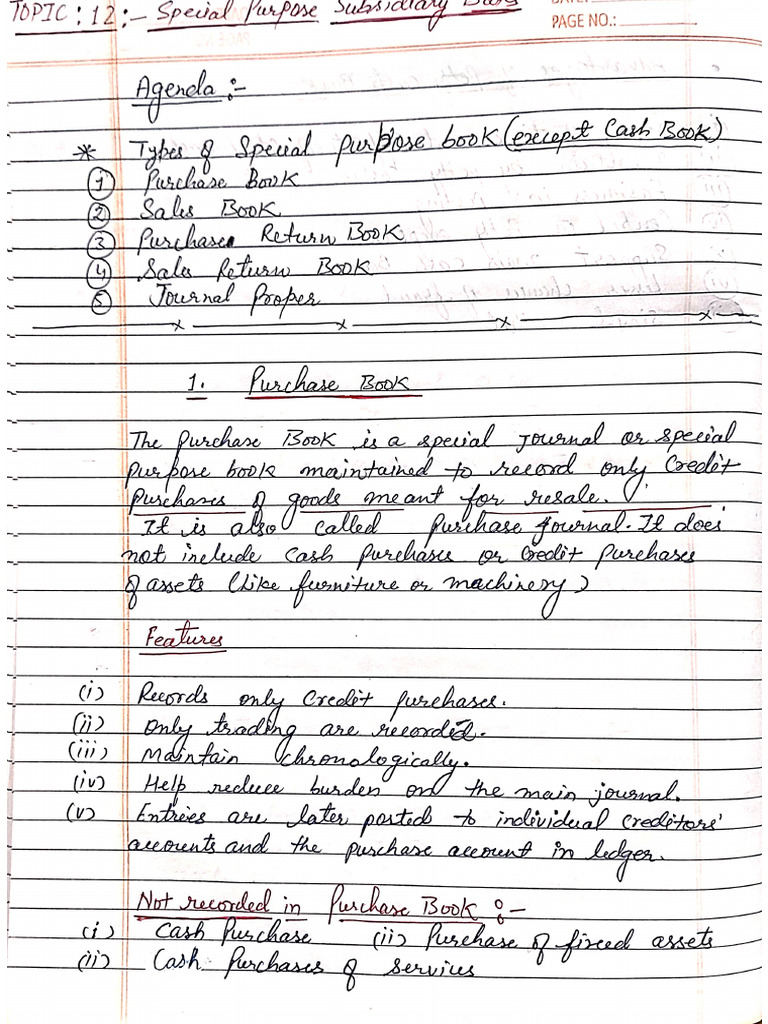 TOPIC: 12:- Special Purpose Subsidiary Books
PAGE NO.:
Agenda :-
* Types of Special purpose book (except Cash Book)
1 Purchase Book
2 Sales Book
3 Purchase Return Book
4 Sales Return Book
5 Journal Proper
1. Purchase Book
The purchase Book is a special journal or special
purpose book maintained to record only Credit
Purchases of goods meant for resale.
It is also called purchase journal. It does
not include cash purchases or credit purchases
of assets (like furniture or machinery)
Features
(i) Records only credit purchases.
(ii) Only trading are recorded.
(iii) Maintain chronologically.
(iv) Help reduce burden on the main journal.
(v) Entries are later posted to individual creditors'
accounts and the purchase account in ledger.
Not recorded in Purchase Book :-
(i) Cash Purchase (ii) Purchase of fixed assets
(ii) Cash Purchases of services